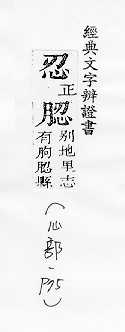 經典文字辨證書
忍正
䏰別地里志
有朐䏰縣
(心部·P75)